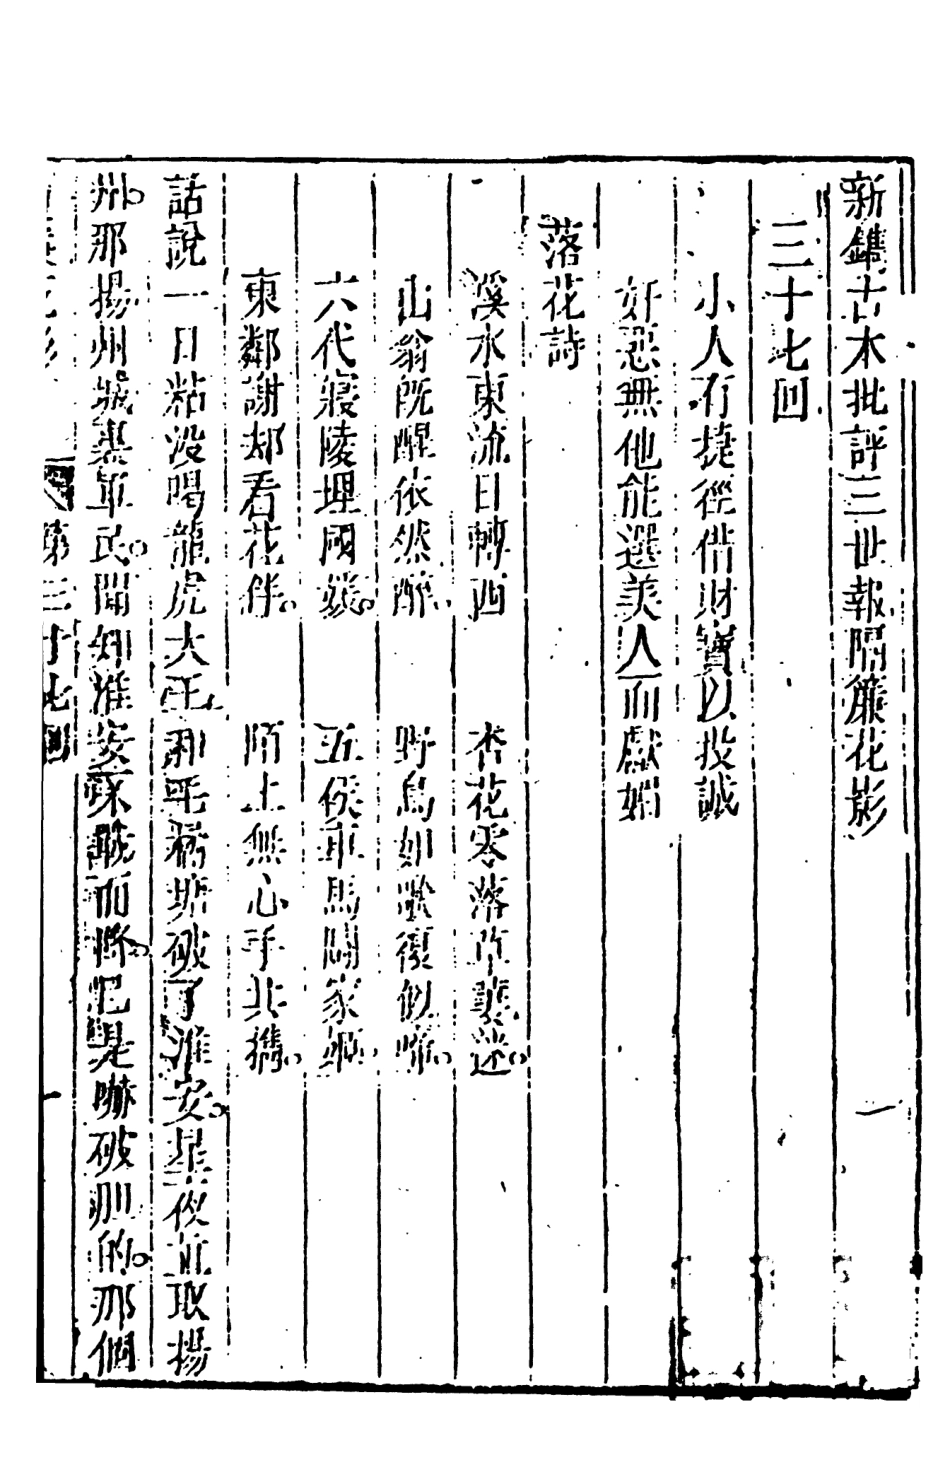 新鐫古本批評三世報隔簾花影
三十七回
小人有捷徑借財寶以投誠
奸惡無他能選美人而獻媚
落花詩
溪水東流日轉西　杏花零落草萋迷
山翁旣醒依然醉　野鳥如歌復似啼
六代寢陵埋國媛　五侯車馬鬪家姬
東鄰謝却看花伴　陌上無心手共攜
話說一日粘没喝龍虎大王和毛橘塘破了淮安星夜並取揚
州那揚州城裏軍民聞知淮安不戰而降已是嚇破胆的那個
第三十七回
一